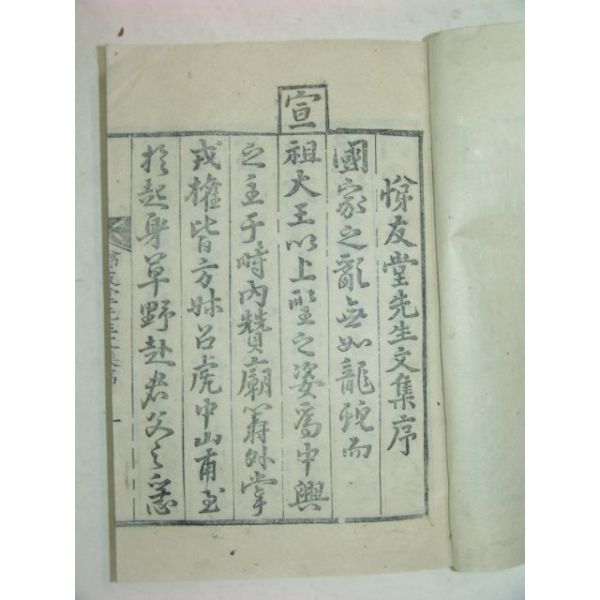 悌友堂先生文集序
國家之亂無如龍蛇而
宣
祖大王以上聖之姿爲中興
之主于時內贊廟籌外掌
戎權皆方叔召虎中山甫至
於起身草野赴君父之